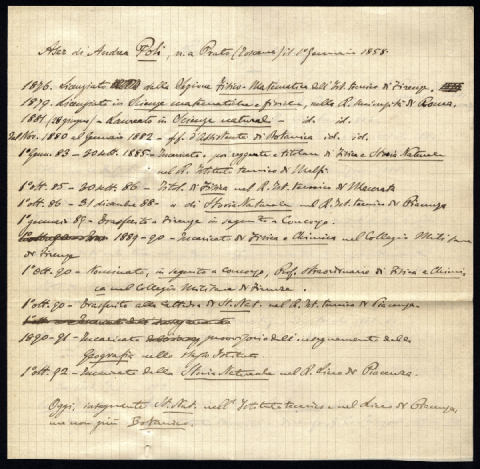 Aser di Andrea Poli, n. a Prato (Toscana) il 1° Gennaio 1858.
1876. Licenziato dalla Sezione Fisico-Matematica dell'Ist. tecnico di Firenze.
1879. Licenziato in Scienze matematiche e fisiche, nella R. Università di Roma.
1881 (giugno) - Laureato in Scienze naturali - id. id.
Dal Nov. 1880 al Gennaio 1882 - ff. d'Assistente di Botanica id. id.
1° Genn. 83 - 30 sett. 1885 - Incaricato, poi reggente e titolare di Fisica e Storia Naturale
nel R. Istituto tecnico di Melfi.
1° ott. 85 - 30 sett. 86 - Titol. di Fisica nel R. Ist. tecnico di Macerata
1° ott. 86 - 31 dicembre 88 - " di Storia Naturale nel R. Ist. tecnico di Piacenza
1° gennaio 89 - Trasferito a Firenze in seguito a Concorso.
1889-90 - Incaricato di Fisica e Chimica nel Collegio Militare
di Firenze
1° ott. 90 - Nominato, in seguito a concorso, Prof. straordinario di Fisica e Chimi
ca nel Collegio Militare di Firenze.
1° ott. 90 - Trasferito alla Cattedra di St. Nat. nel R. Ist. tecnico di Piacenza
1890-91 - Incaricato provvisorio dell'insegnamento della
Geografia nello stesso Istituto
1° ott. 92 - Incaricato della Storia Naturale nel R. Liceo di Piacenza.
Oggi, insegnante St. Nat. nell'Istituto tecnico e nel Liceo di Piacenza,
ma non più Botanico.